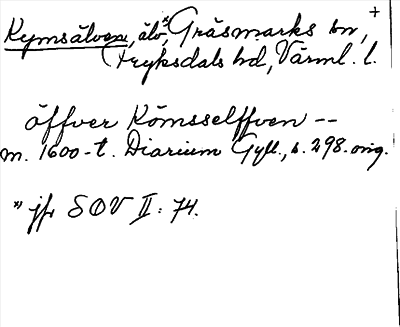 +
Kymsälven, älv,* Gräsmarks sn,
Fryksdals hd, Värml. l.
öffver Kömsselffven --
m. 1600-t. Diarium Gyll., s. 298. orig.
*) jfr SOV II: 74.